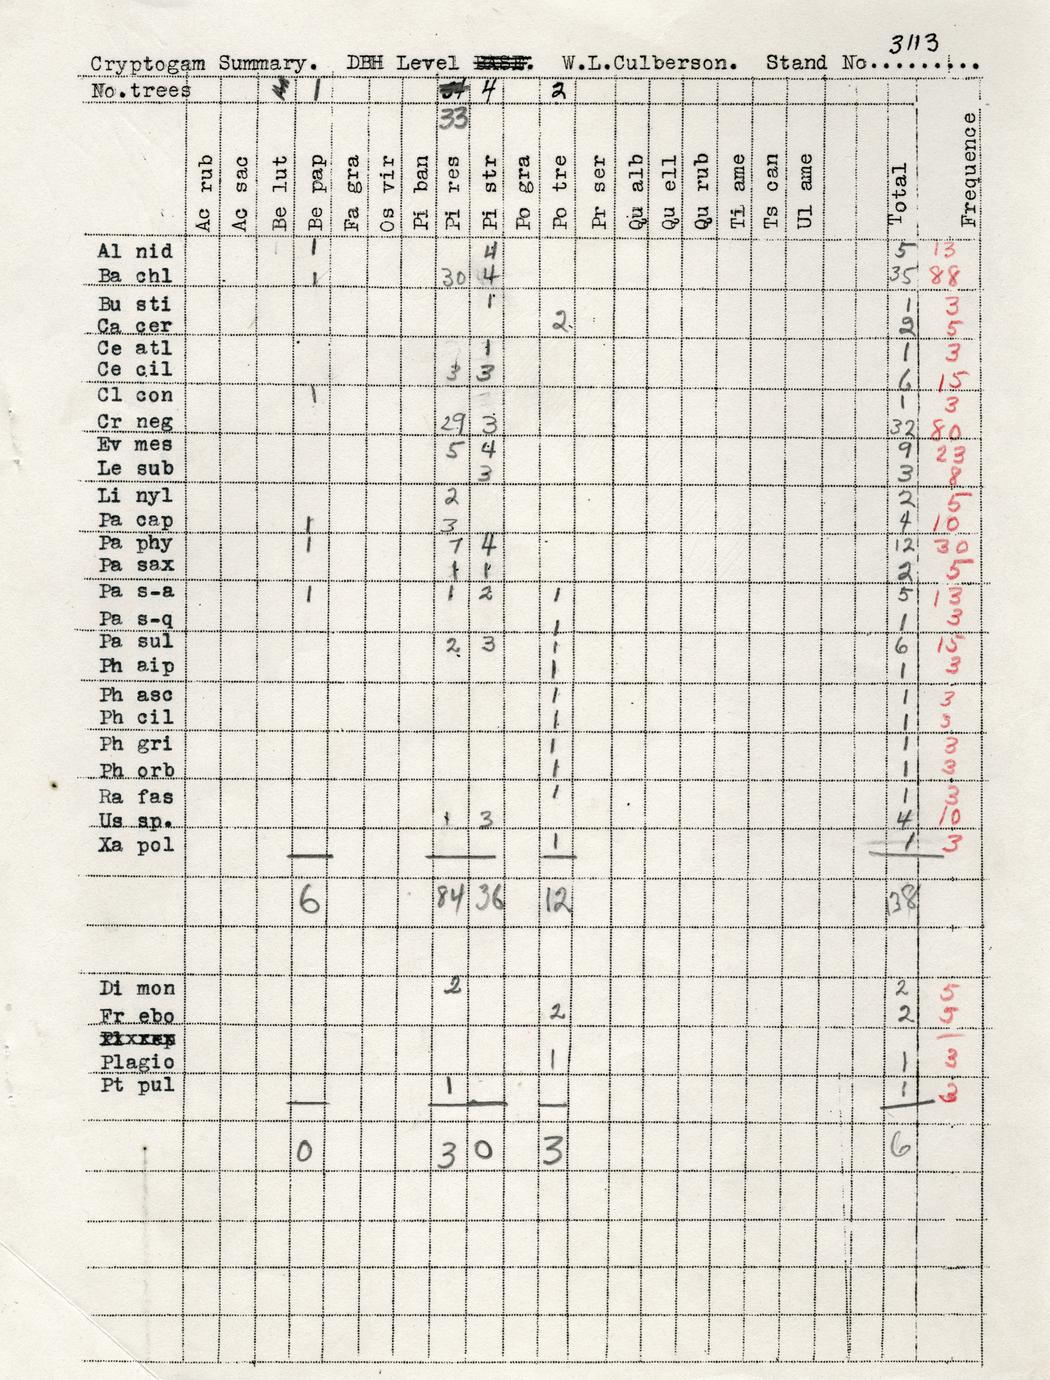 3113
Cryptogam Summary. DBH Level W.L.Culberson. Stand No..........
No.trees 1 4 2
33
Ac rub Ac sac Be lut Be pap Fa gra Os vir Pi ban Pi res Pi str Po gra Po tre Pr ser Qu alb Qu ell Qu rub Ti ame Ts can Ul ame Total Frequence
Al nid 1 4 5 13
Ba chl 1 30 4 35 88
Bu sti 1 1 3
Ca cer 2 2 5
Ce atl 1 1 3
Ce cil 3 3 6 15
Cl con 1 1 3
Cr neg 29 3 32 80
Ev mes 5 4 9 23
Le sub 3 3 8
Li nyl 2 2 5
Pa cap 1 3 4 10
Pa phy 1 7 4 12 30
Pa sax 1 1 2 5
Pa s-a 1 1 2 1 5 13
Pa s-q 1 1 3
Pa sul 2 3 1 6 15
Ph aip 1 1 3
Ph asc 1 1 3
Ph cil 1 1 3
Ph gri 1 1 3
Ph orb 1 1 3
Ra fas 1 1 3
Us sp. 1 3 4 10
Xa pol 1 1 3
6 84 36 12 138
Di mon 2 2 5
Fr ebo 2 2 5
Plagio 1 1 3
Pt pul 1 1 3
0 3 0 3 6